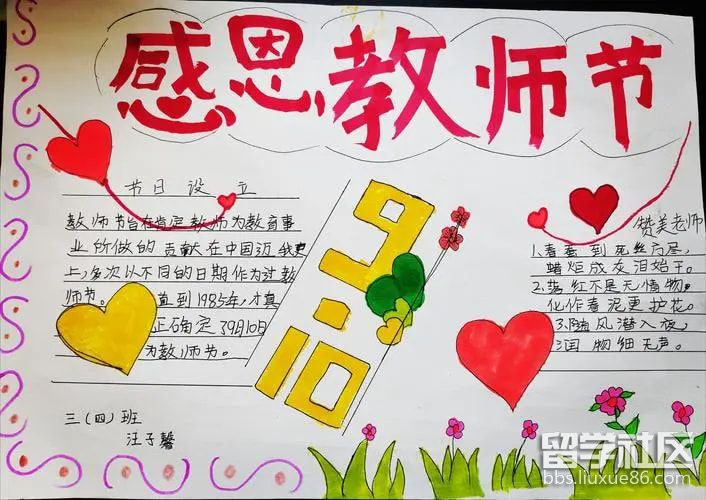 感恩教师节
节日设立
教师节旨在肯定教师为教育事
业所做的贡献在中国近
上,多次以不同的日期作为过教
师节。直到1985年,才真
正确定了9月10日
为教师节。
三(四)班
汪子馨
9.10
赞美老师
1.春蚕到死丝方尽,
蜡炬成灰泪始干。
2.落红不是无情物,
化作春泥更护花。
3.随风潜入夜,
润物细无声。
留学社区
bbs.liuxue86.com